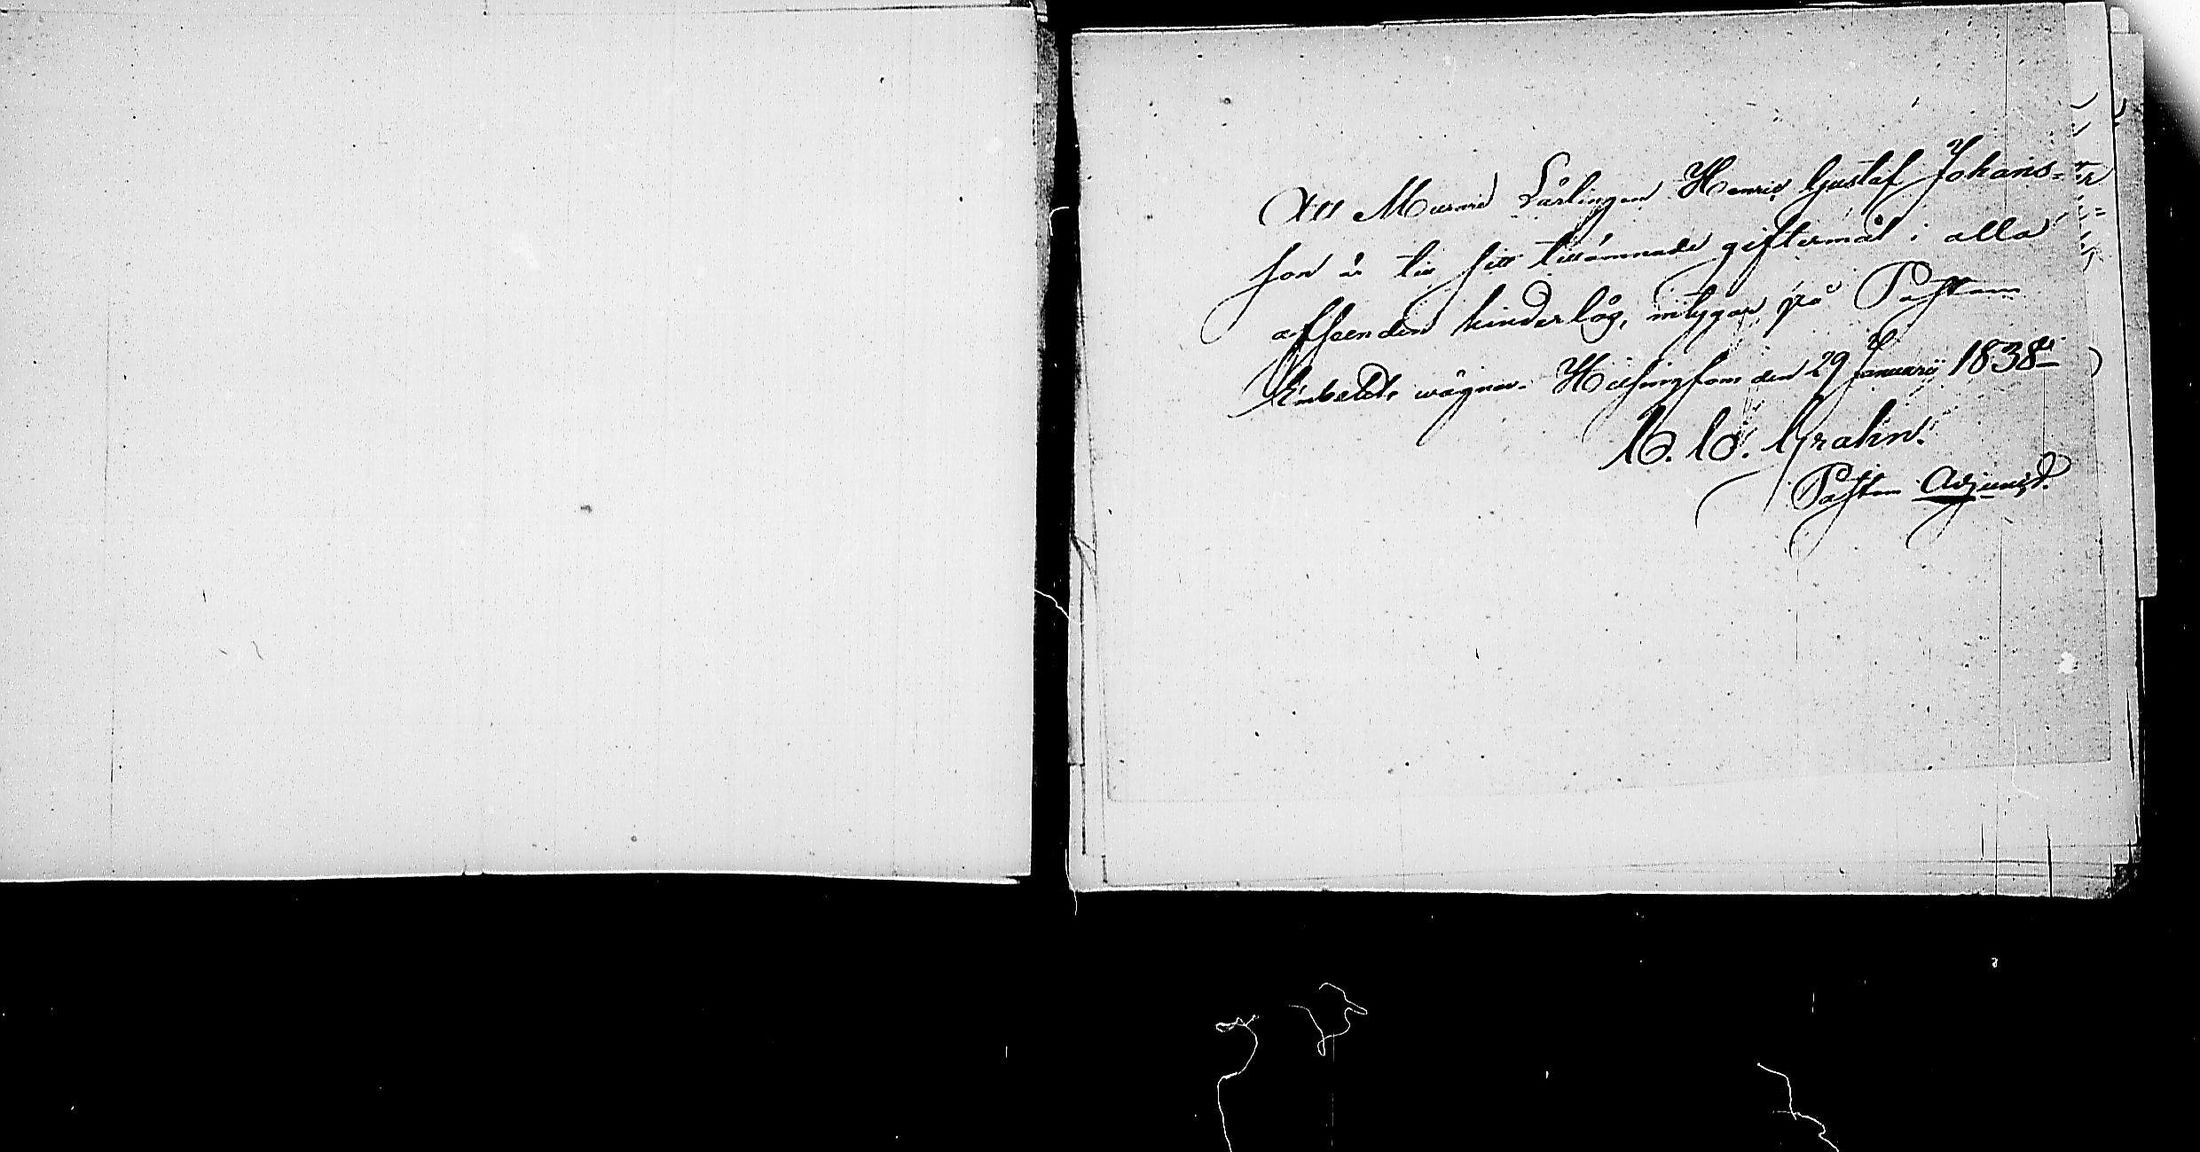 Att Murare Lärlingen Henric Gustaf Johans=
son är till sitt tillämnade giftermål i alla
afseenden hinderlös, intygar på Pastors
Embetets wägnar. Helsingfors den 29 January 1838
Grahn.
Pastors Adjunct.